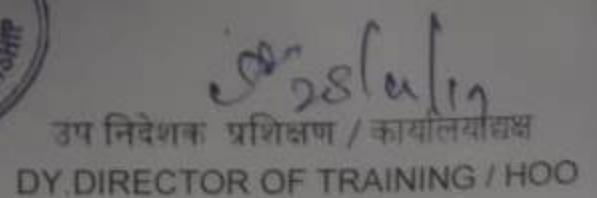 SHIP
उप निदेशक प्रशिक्षण / कार्यालयाध्यक्ष
DY.DIRECTOR OF TRAINING / HOO